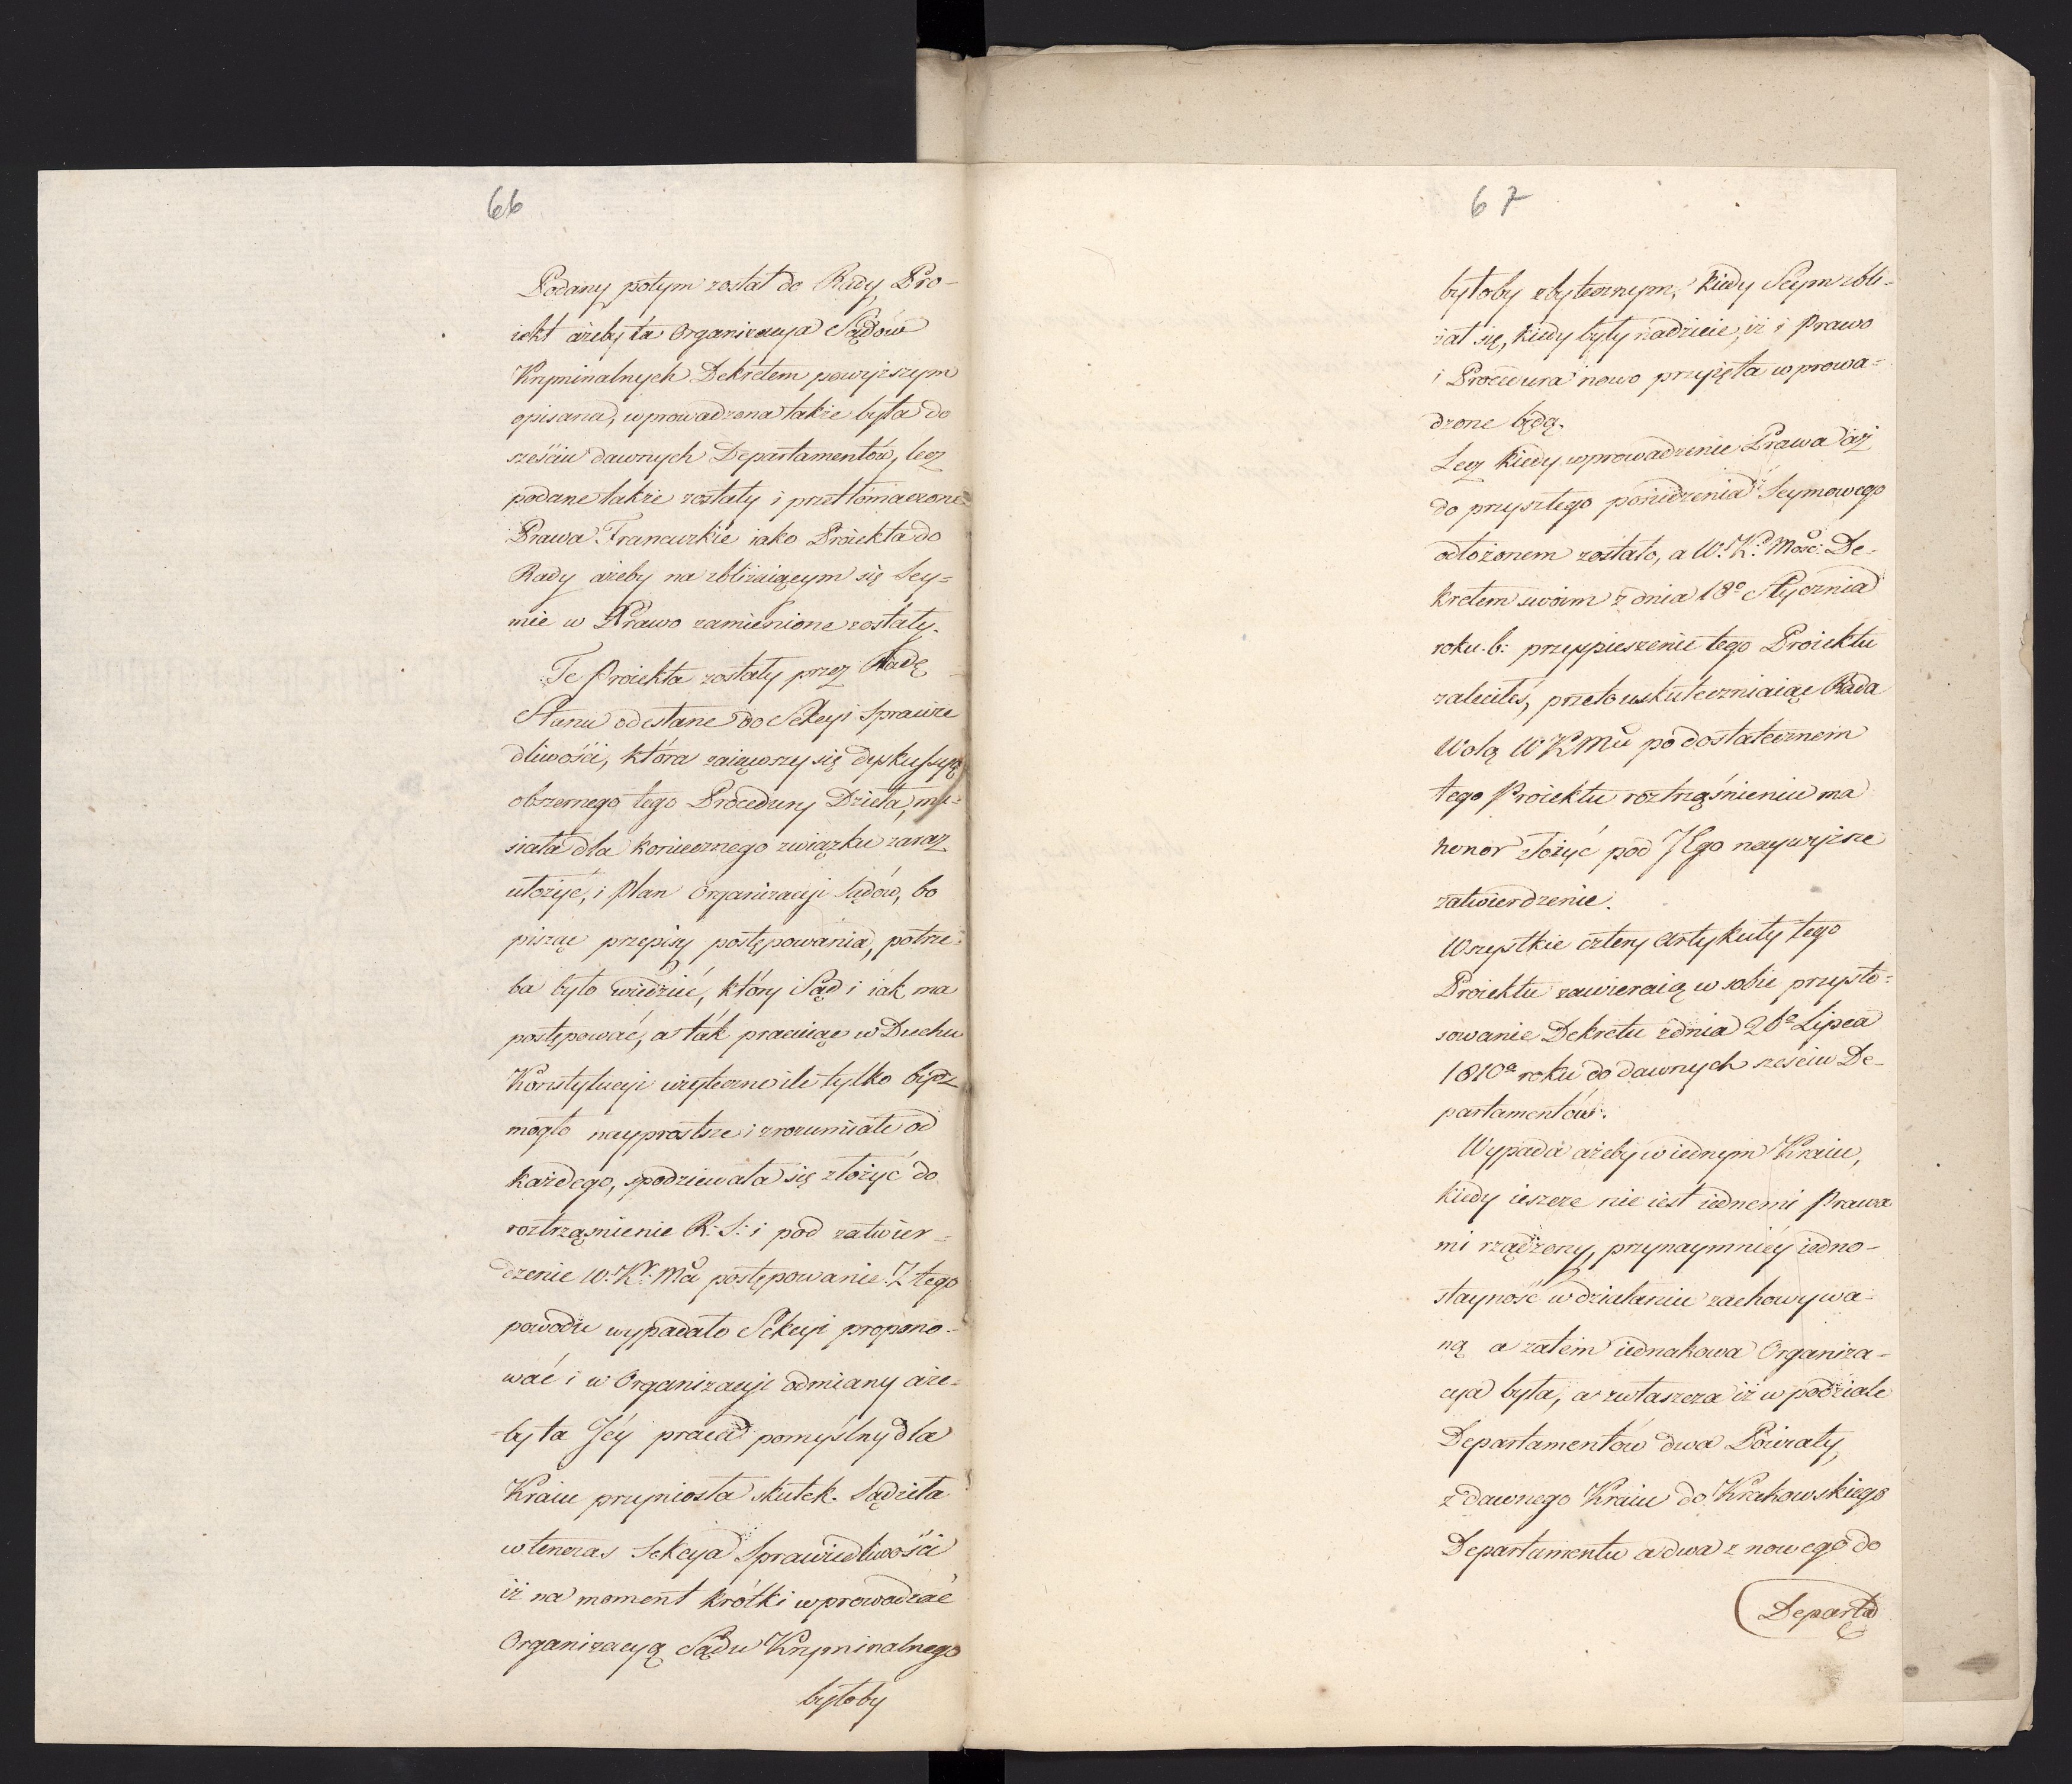 66
Podany potym został do Rady Pro-
iekt ażeby ta Organizacya Sądów
Kryminalnych Dekretem powyższym
opisana, wprowadzona także była do
sześciu dawnych Departamentów, lecz
podane także zostały i przetłómaczone
Prawa Francuzkie iako Proiekta do
Rady ażeby na zbliżaiącym się Sey=
mie w Prawo zamienione zostały.
Te Proiekta zostały przez Radę
Stanu odesłane do Sekcyi Sprawie
dliwości, która zaiąwszy się dyskussyą
obszernego tego Procedury Dzieła, mu=
siała dla koniecznego związku zaraz
ułożyć, i Plan Organizacyi Sądów, bo
pisząc przepisy postępowania, potrze=
ba było wiedzieć, który Sąd i iak ma
postępować, a tak pracuiąc w Duchu
Konstytucyi użyteczne ile tylko bydz
mogło nayprostsze i zrozumiałe od
każdego, spodziewała się złożyć do
roztrząśnienie R: S: i pod zatwier=
dzenie W: K: Mci postępowanie. Z tego
powodu wypadało Sekcyi propono=
wać i w Organizacyi odmiany aże=
by ta Jéy praca pomyślny dla
Kraiu przyniosła skutek. Sądziła
wtenczas Sekcya Sprawiedliwości
iż na moment krótki wprowadzać
Organizacyą Sądu Kryminalnego
byłoby
67
byłoby zbytecznym, kiedy Seym zbli=
żał się, kiedy były nadzieie, iż i Prawo
i Procedura nowo przyięta wprowa=
dzone będą.
Lecz kiedy wprowadzenie Prawa aż
do przyszłego posiedzenia Seymowego
odłożonem zostało, a W: K: Mość: De=
kretem swoim z dnia 18º Stycznia
roku b: przyspieszenie tego Proiektu
zaleciłeś, przeto uskuteczniaiąc Rada
Wolą WKMci po dostatecznem
tego Proiektu roztrząśnieniu ma
honor złożyć pod JEgo naywyższe
zatwierdzenie.
Wszystkie cztery Artykuły tego
Proiektu zawieraią w sobie przysto=
sowanie Dekretu z dnia 26º Lipca
1810º roku do dawnych sześciu De-
partamentów.
Wypada ażeby w iednym Kraiu,
kiedy ieszcze nie iest iednemi Prawa
mi rządzony, przynaymniéy iedno-
stayność w działaniu zachowywa=
ną a zatem iednakowa Organiza-
cya była, a zwłaszcza iż w podziale
Departamentów dwa Powiaty
z dawnego Kraiu do Krakowskiego
Departamentu a dwa z nowego do
Departa